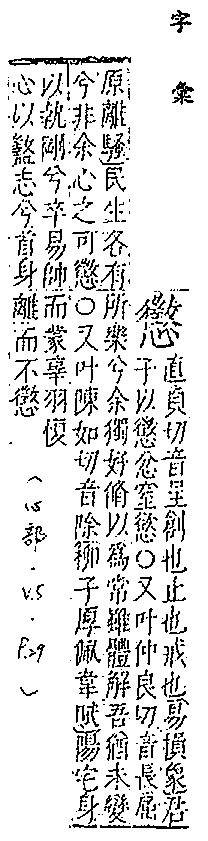 字彙
懲
直貞切音呈創也止也戒也易損象君
子以懲忿窒慾○又叶仲良切音長屈
原離騷民生各有所樂兮余獨好脩以爲常雖體解吾猶未變
兮非余心之可懲○又叶陳如切音除柳子厚佩韋賦陽宅身
以執剛兮卒易帥而蒙辜羽愎
心以盭志兮首身離而不懲
(心部.V.5.P.29)